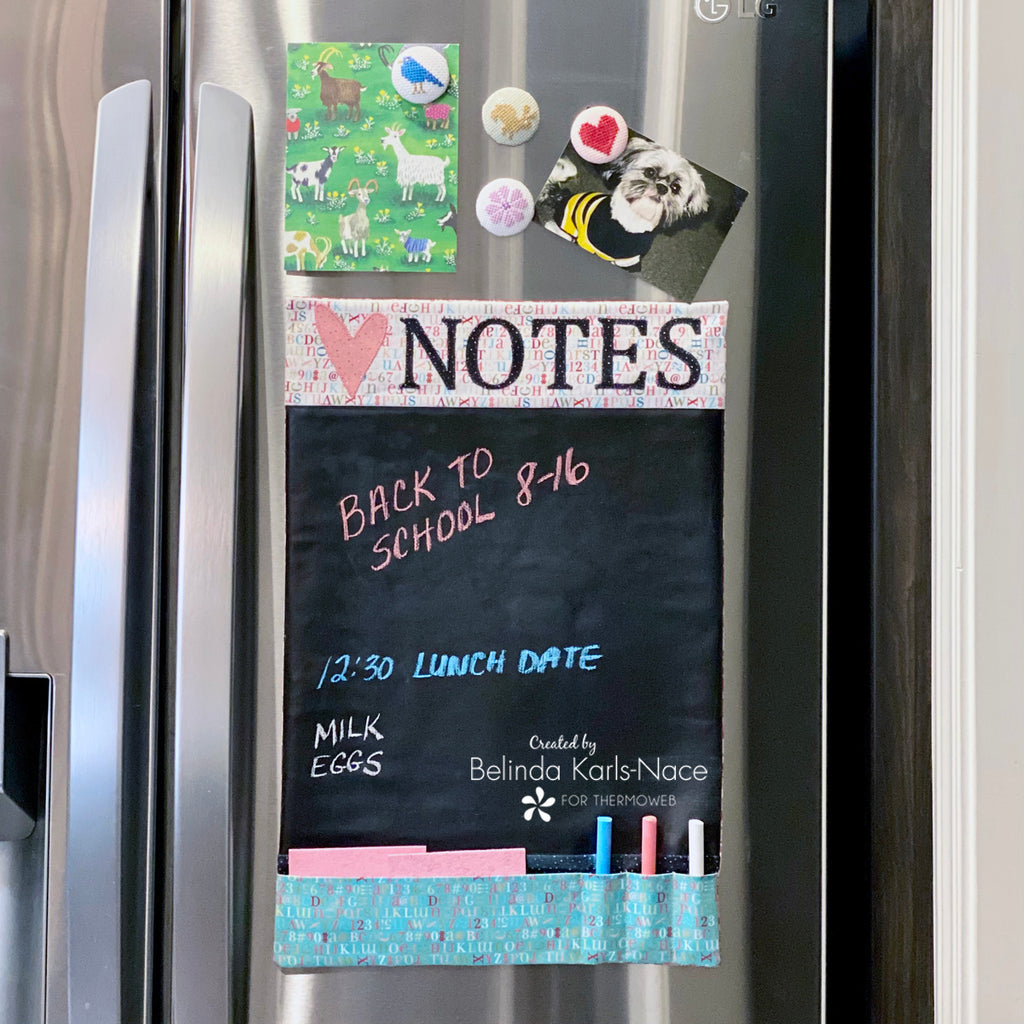 LG
NOTES
BACK TO
SCHOOL 8-16
12:30 LUNCH DATE
MILK
EGGS
Created by
Belinda Karls-Nace
FOR THERMOWEB